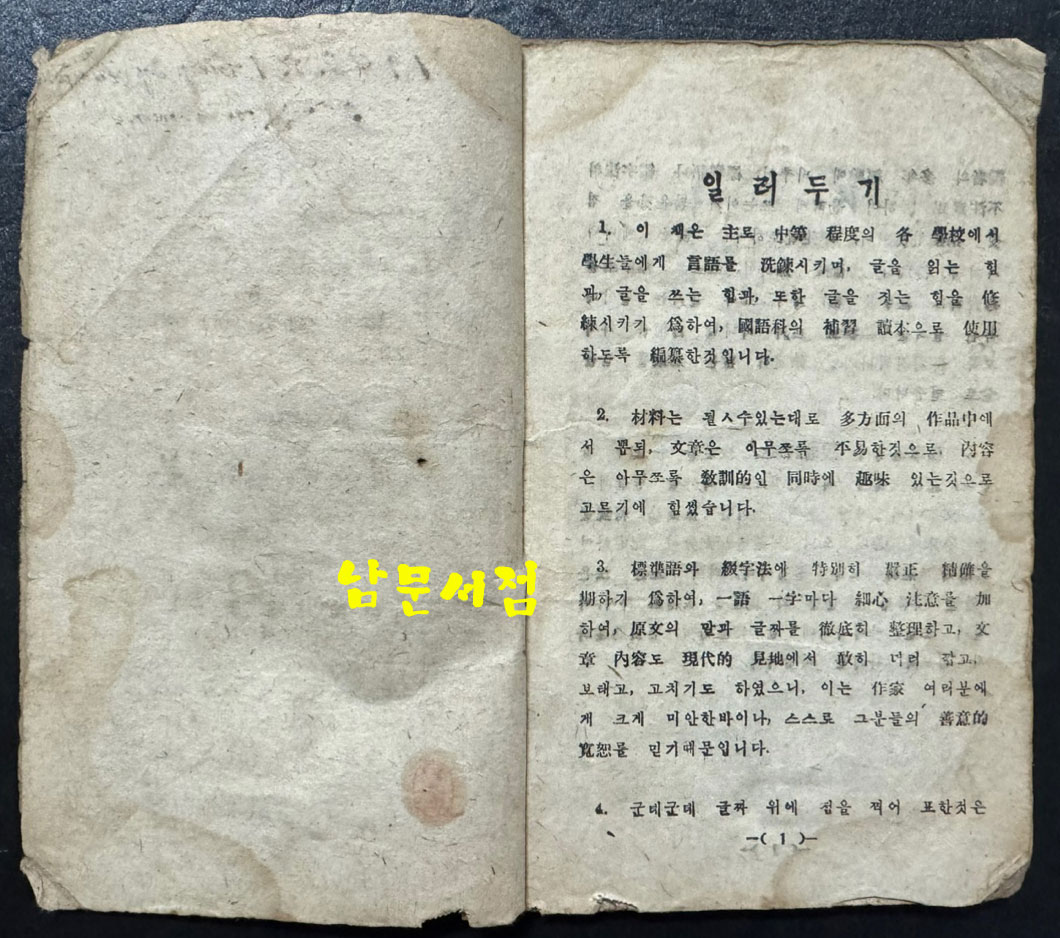 일러두기
1. 이 책은 主로 中等 程度의 各 學校에서
學生들에게 言語를 洗鍊시키며, 글을 읽는 힘
과, 글을 쓰는 힘과, 또한 글을 짓는 힘을 修
練시키기 爲하여, 國語科의 補習 讀本으로 使用
하도록 編纂한것입니다.
2. 材料는 될ㅅ수있는대로 多方面의 作品中에
서 뽑되, 文章은 아무쪼록 平易한것으로, 內容
은 아무쪼록 敎訓的인 同時에 趣味 있는것으로
고르기에 힘썼습니다.
3. 標準語와 綴字法에 特別히 嚴正 精確을
期하기 爲하여, 一語 一字마다 細心 注意를 加
하여, 原文의 말과 글짜를 徹底히 整理하고, 文
章 內容도 現代的 見地에서 敢히 더러 깎고,
보태고, 고치기도 하였으니, 이는 作家 여러분에
게 크게 미안한바이나, 스스로 그분들의 善意的
寬恕를 믿기때문입니다.
4. 군데군데 글짜 위에 점을 찍어 표한것은
—( 1 )—
남문서점